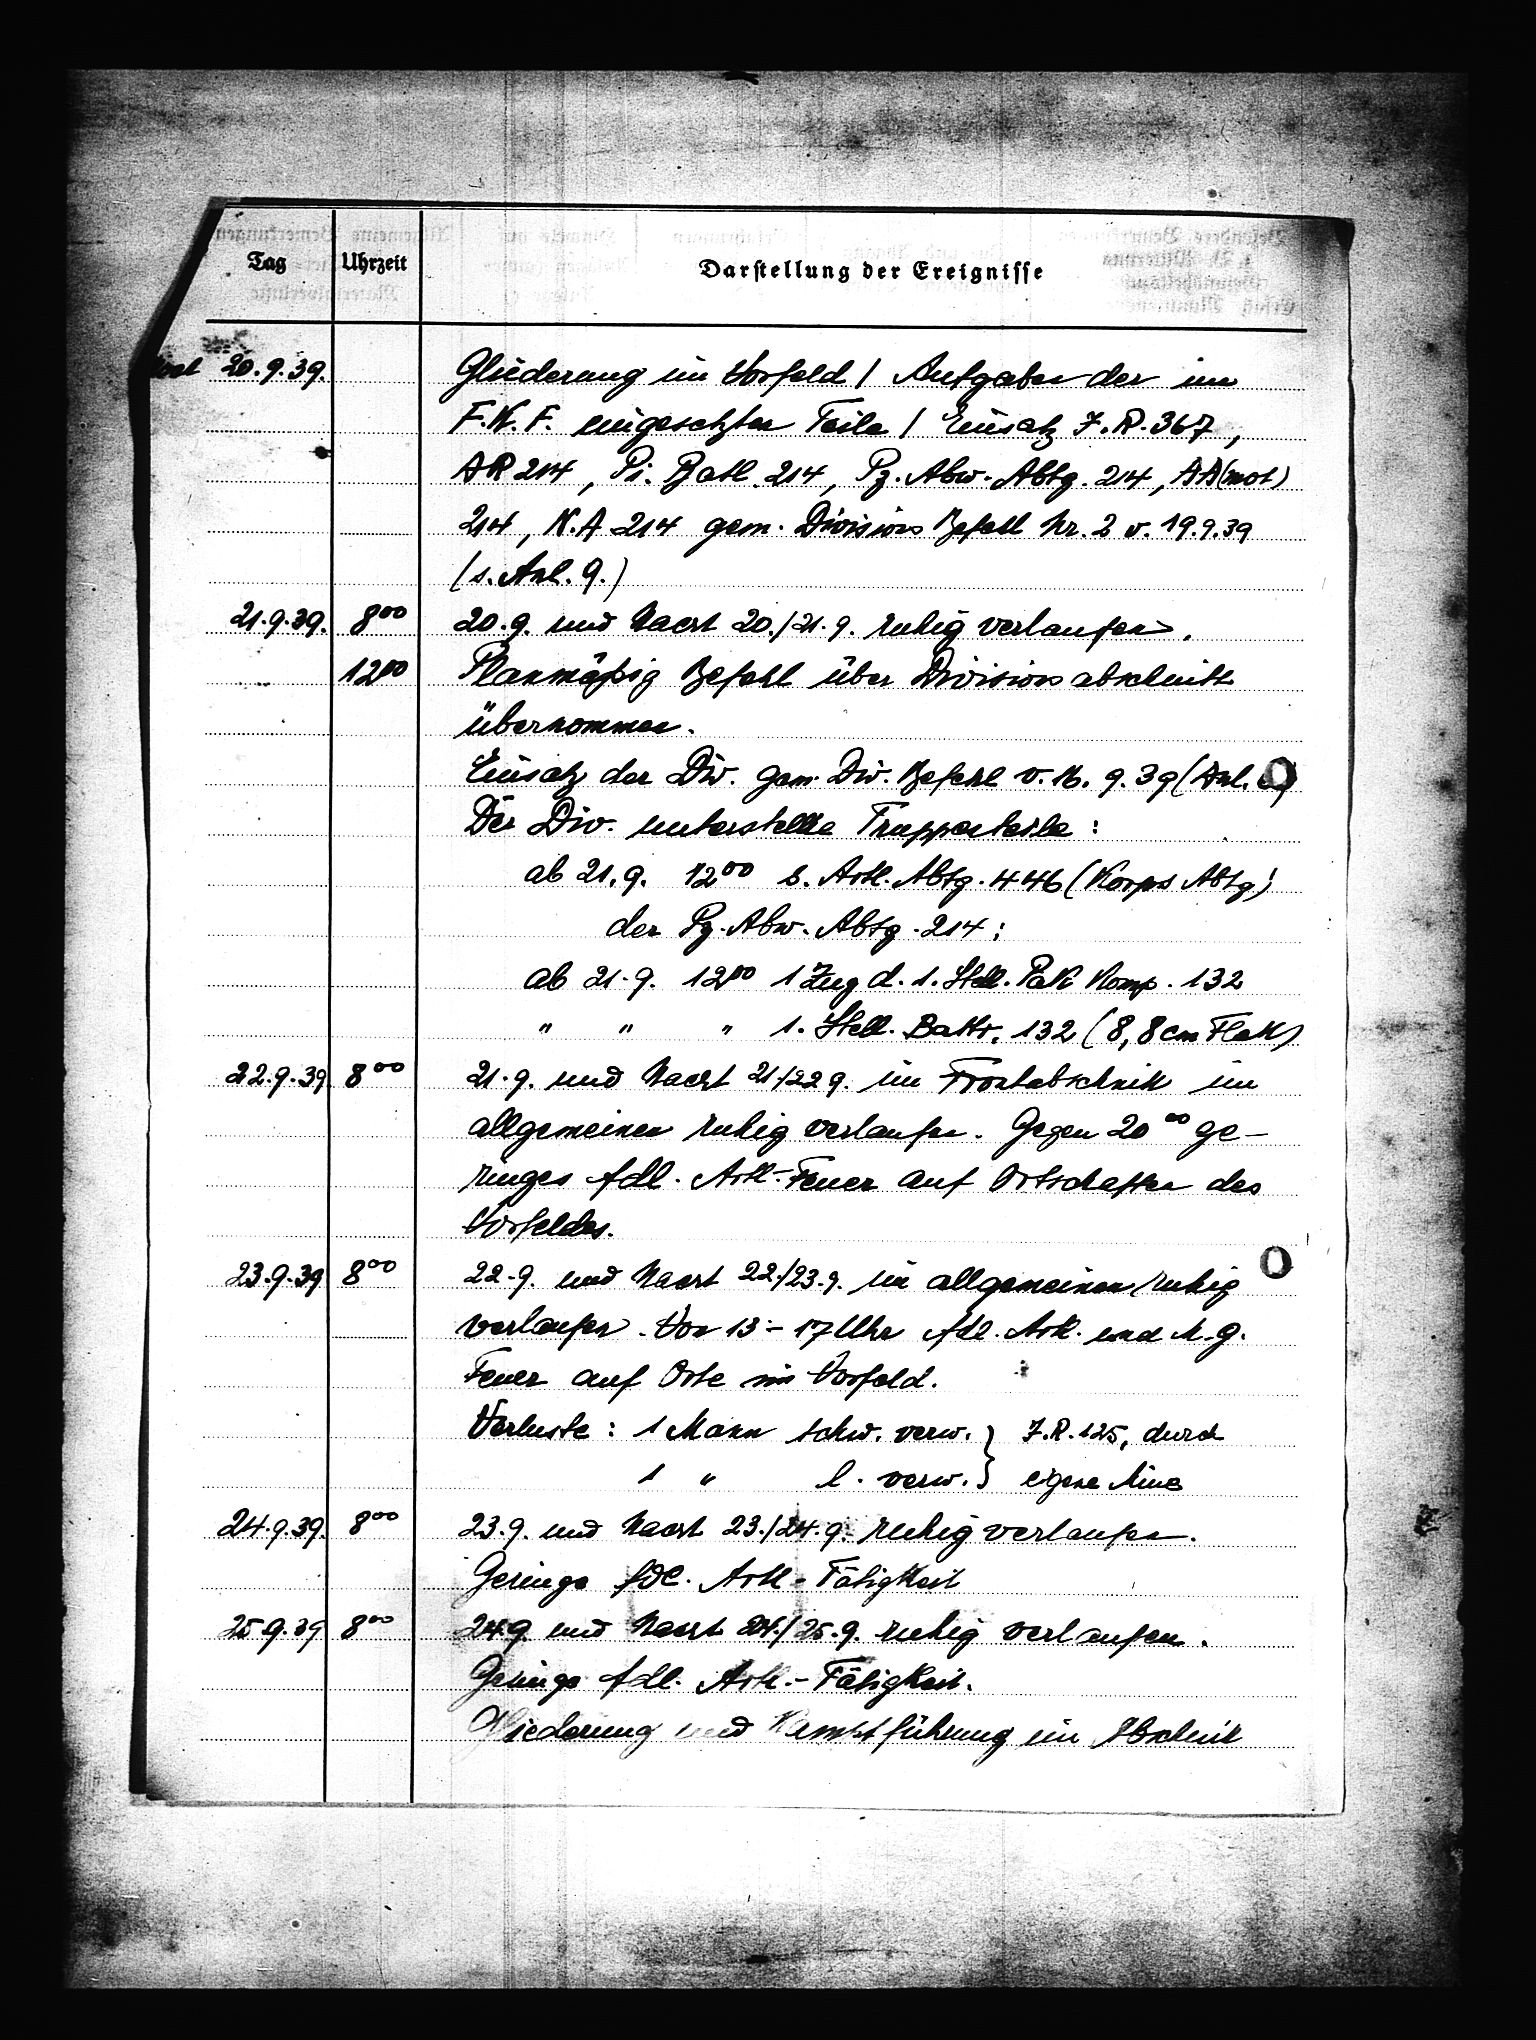 Tag Uhrzeit Darstellung der Ereignisse
20.9.39. Gliederung im Vorfeld / Aufgaben der im
F.K.F. eingesetzten Teile / Einsatz J.R. 367,
AR 214, Pi. Batl. 214, Pz. Abw. Abtg. 214, AA (mot)
214, N.A 214 gem. Divisions Befehl Nr. 2 v. 19.9.39
(s. Anl. 9.)
21.9.39. 8⁰⁰ 20.9. und Nacht 20./21.9. ruhig verlaufen.
12⁰⁰ Planmäßig Befehl über Divisionsabschnitt
übernommen.
Einsatz der Div. gem. Div. Befehl v. 16.9.39 (Anl.
Der Div. unterstellte Truppenteile:
ab 21.9. 12⁰⁰ s. Artl. Abtg. 446 (Korps Abtg)
der Pz. Abw. Abtg. 214:
ab 21.9. 12⁰⁰ 1 Zug d. 1. Stell. Pak Komp. 132
" " " 1. Stell. Battr. 132 (8,8 cm Flak)
22.9.39 8⁰⁰ 21.9. und Nacht 21./22.9. im Frontabschnitt im
allgemeinen ruhig verlaufen. Gegen 20⁰⁰ ge-
ringes fdl. Artl.-Feuer auf Ortschaften des
Vorfeldes.
23.9.39 8⁰⁰ 22.9. und Nacht 22./23.9. im allgemeinen ruhig
verlaufen. Von 13 - 17 Uhr fdl. Art. und M.G.
Feuer auf Orte im Vorfeld.
Verluste: 1 Mann schw. verw. } J.R. 125, durch
1 " l. verw. } eigene Mine
24.9.39. 8⁰⁰ 23.9. und Nacht 23./24.9. ruhig verlaufen.
Geringe fdl. Artl.-Tätigkeit
25.9.39 8⁰⁰ 24.9. und Nacht 24./25.9. ruhig verlaufen.
Geringe fdl. Artl.-Tätigkeit.
Gliederung und Kampfführung im Abschnitt